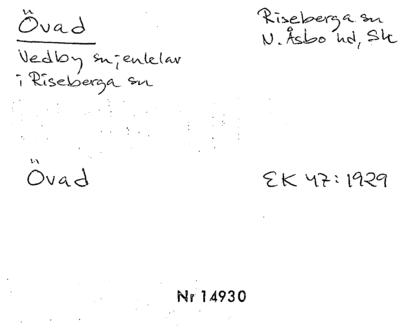 Övad
Riseberga sn
N. Åsbo hd, Sk
Vedby sn; enklav
i Riseberga sn
Övad
EK 47:1929
Nr 14930